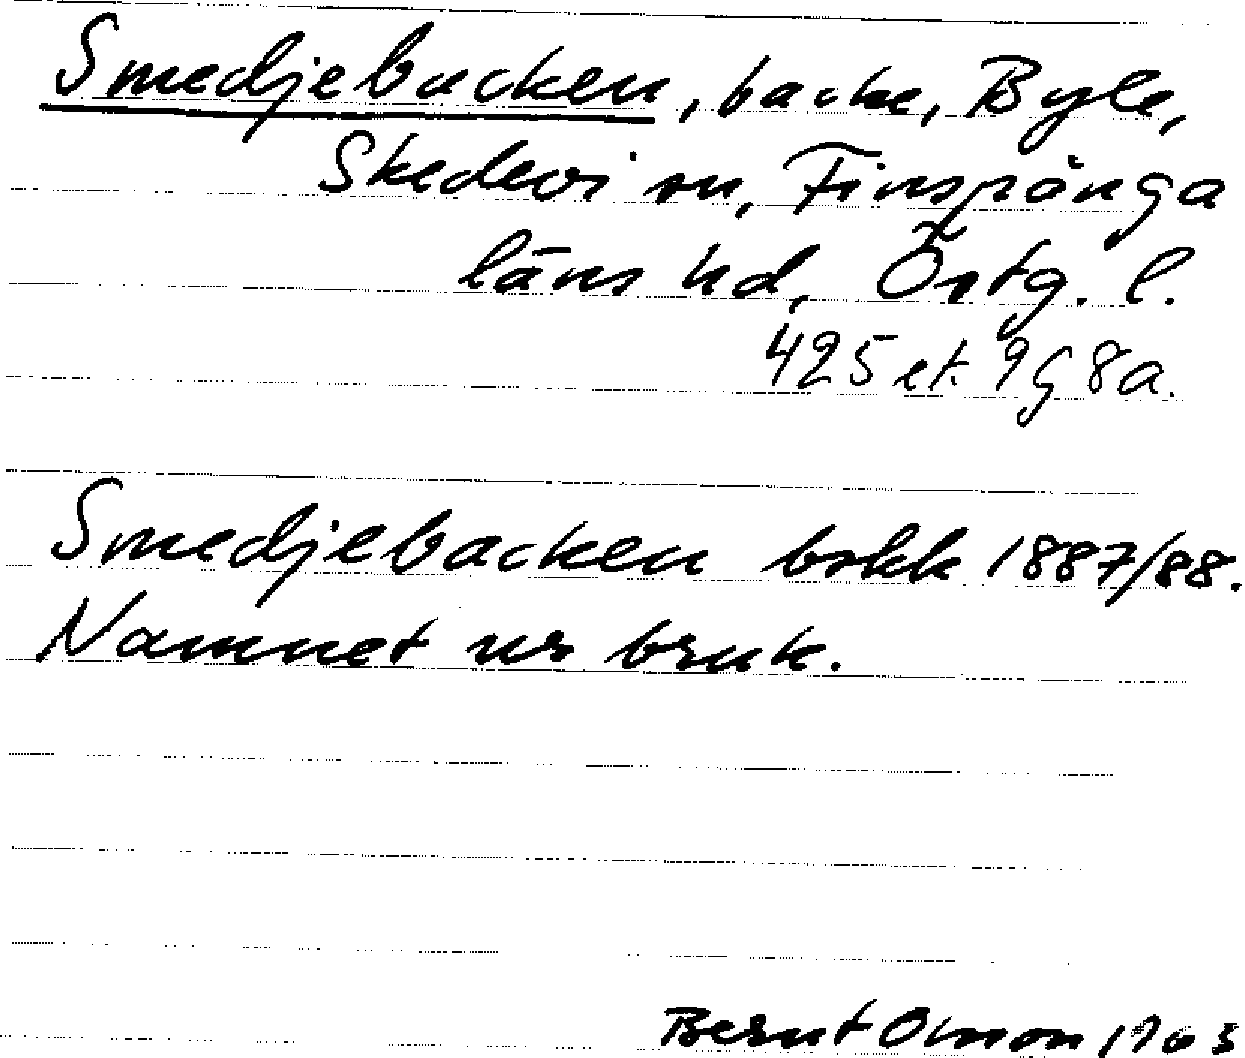 Smedjebacken, backe, Byle,
Skedevi sn, Finspånga
läns hd, Östg. l.
425 et. 9g 8a.
Smedjebacken bskk 1887/88.
Namnet ur bruk.
Bernt Olsson 1963